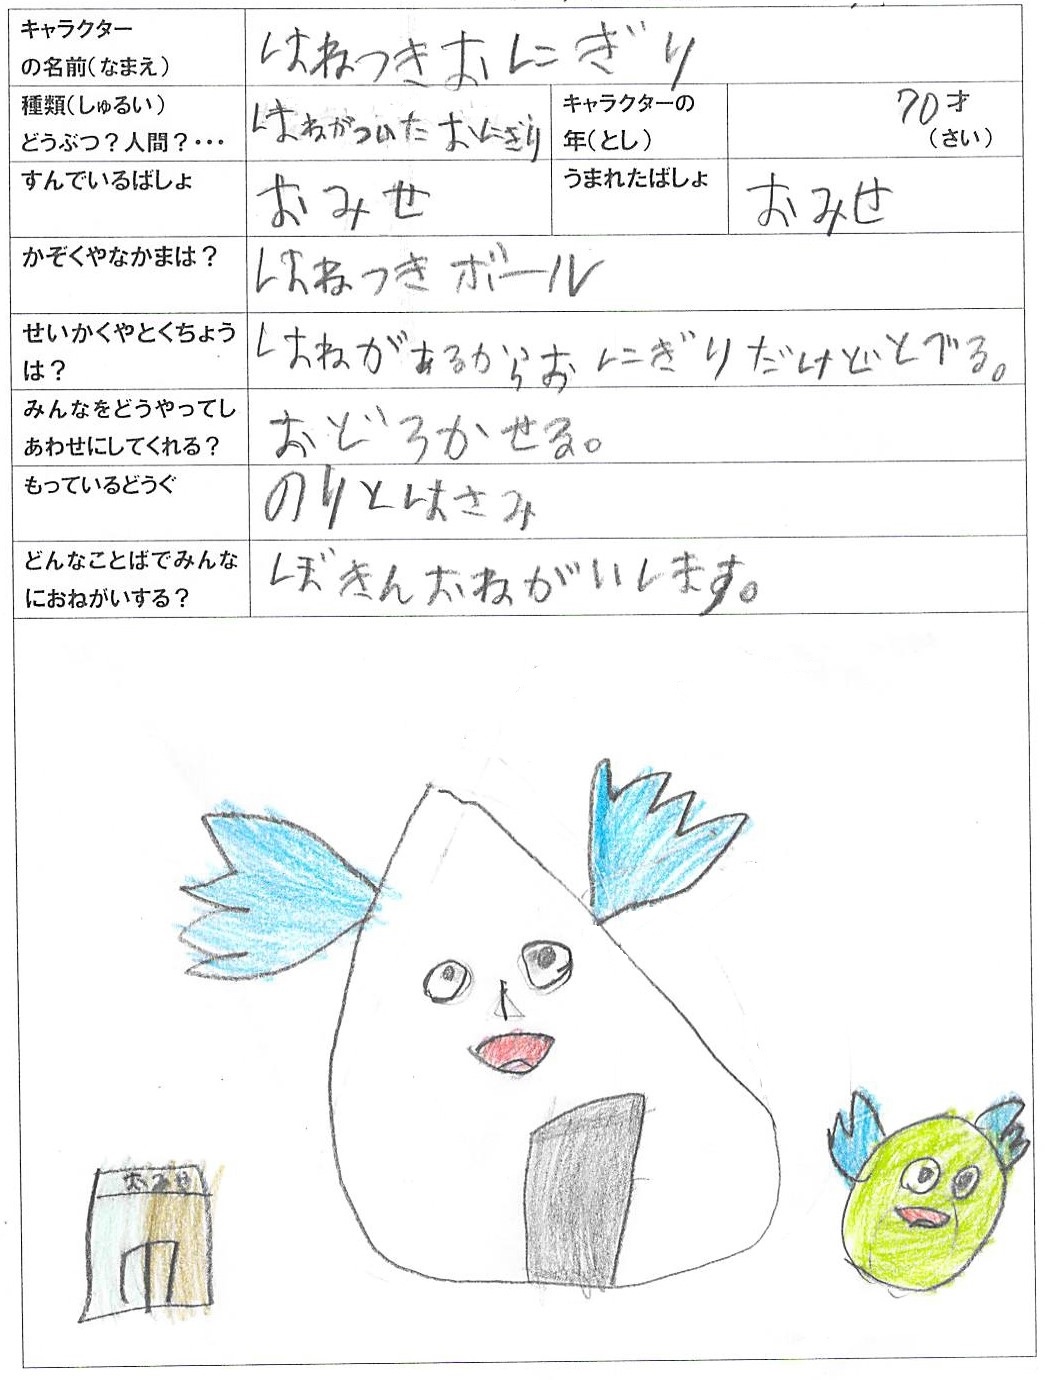 キャラクター
の名前(なまえ)
はねつきおにぎり
種類(しゅるい)
どうぶつ?人間?・・・
はねがついた おにぎり
キャラクターの
年(とし)
70才
(さい)
すんでいるばしょ
おみせ
うまれたばしょ
おみせ
かぞくやなかまは?
はねつきボール
せいかくやとくちょう
は?
はねがあるからおにぎりだけどとべる。
みんなをどうやってし
あわせにしてくれる?
おどろかせる。
もっているどうぐ
のりとはさみ
どんなことばでみんな
におねがいする?
ぼきんおねがいします。
おみせ